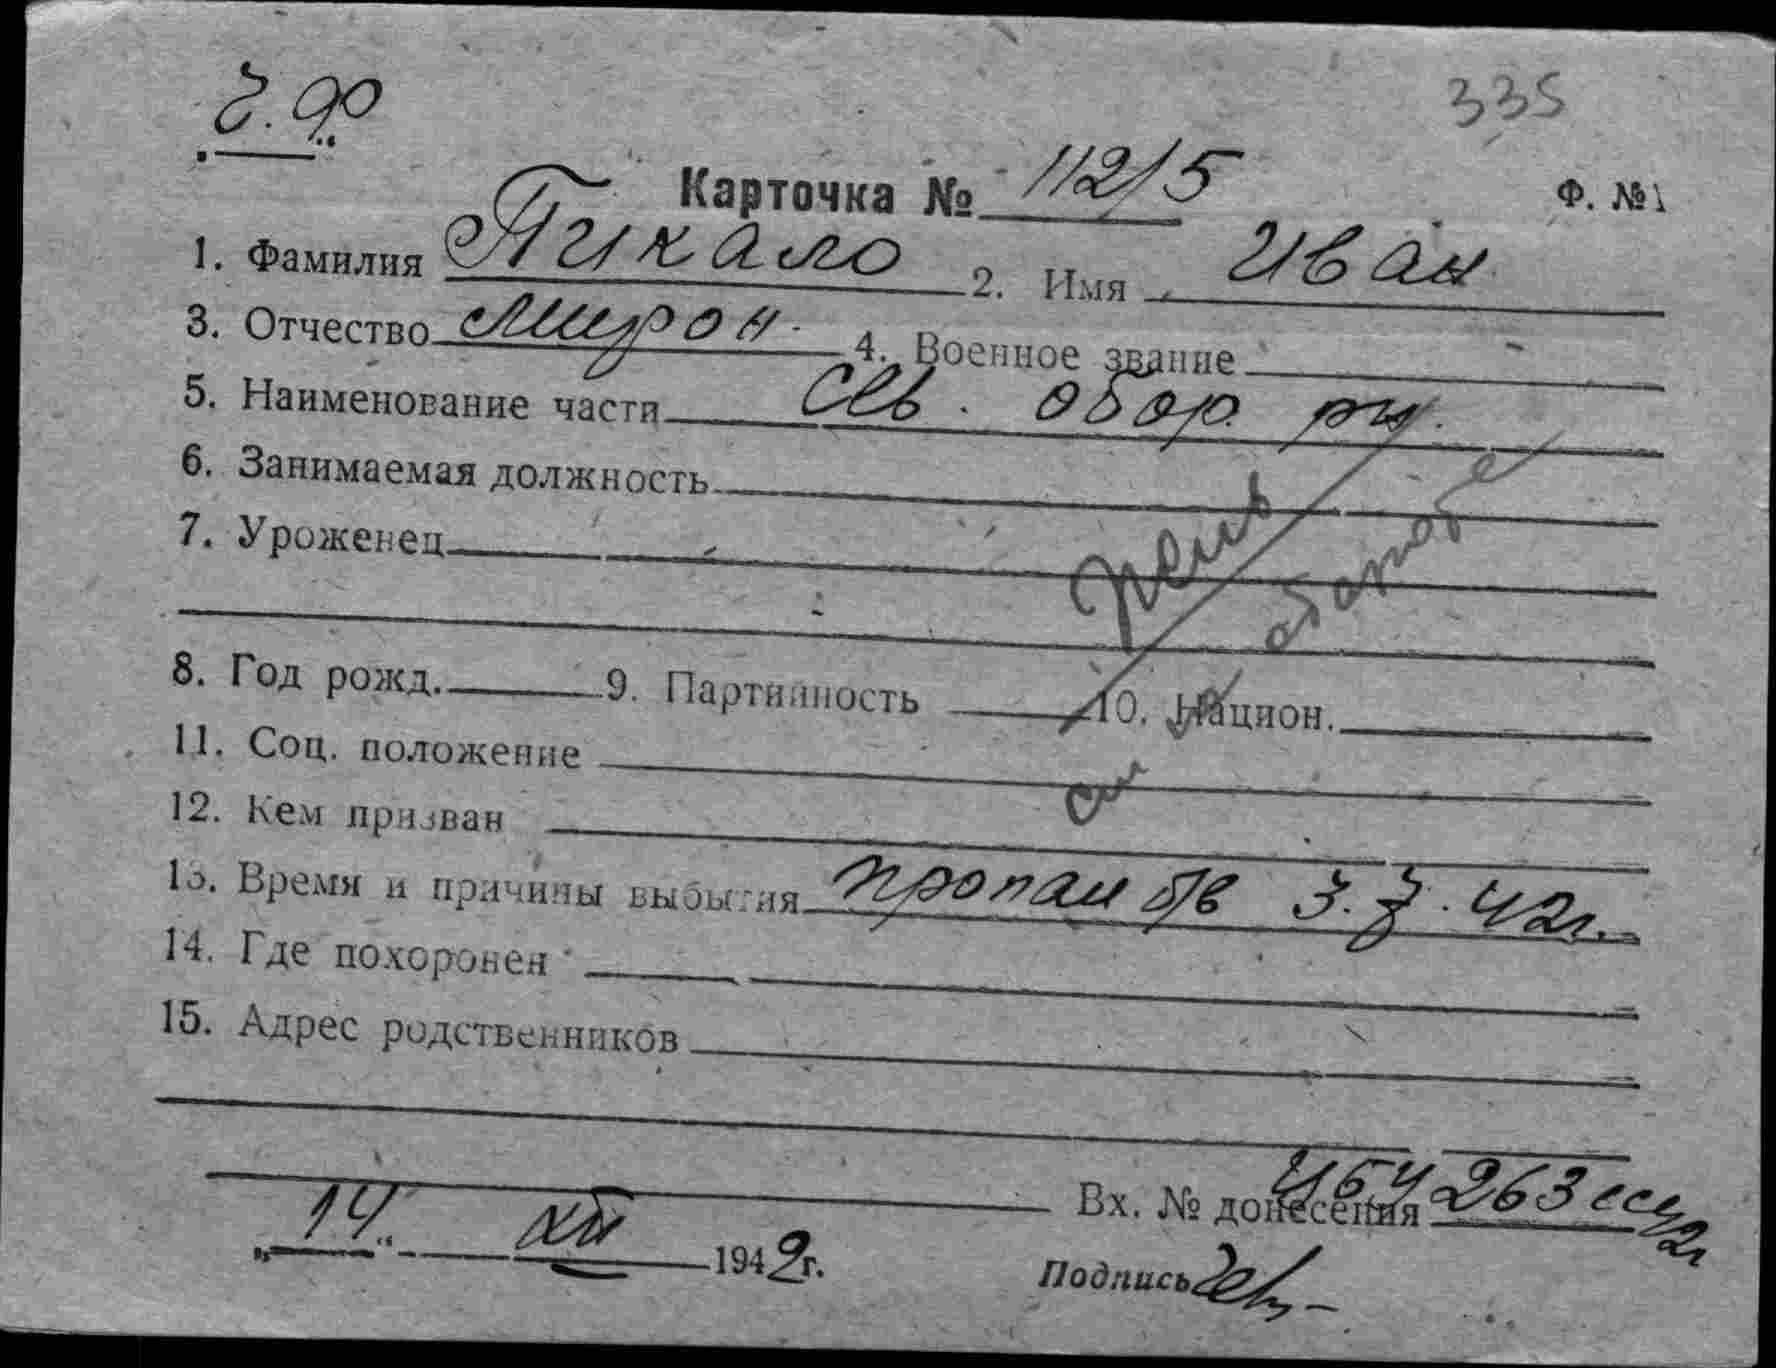 ч. ф
335
Карточка № 112/5 Ф. №1
1. Фамилия Пикало 2. Имя Иван
3. Отчество Мирон. 4. Военное звание -
5. Наименование части Сев. обор. р-н.
6. Занимаемая должность
7. Уроженец
8. Год рожд. 9. Партийность 10. Национ.
11. Соц. положение
12. Кем призван
13. Время и причины выбытия пропал б/в 3.7.42г.
14. Где похоронен
15. Адрес родственников
см на обороте
Вх. № донесения 263
"14" XII 1942г.
Подпись